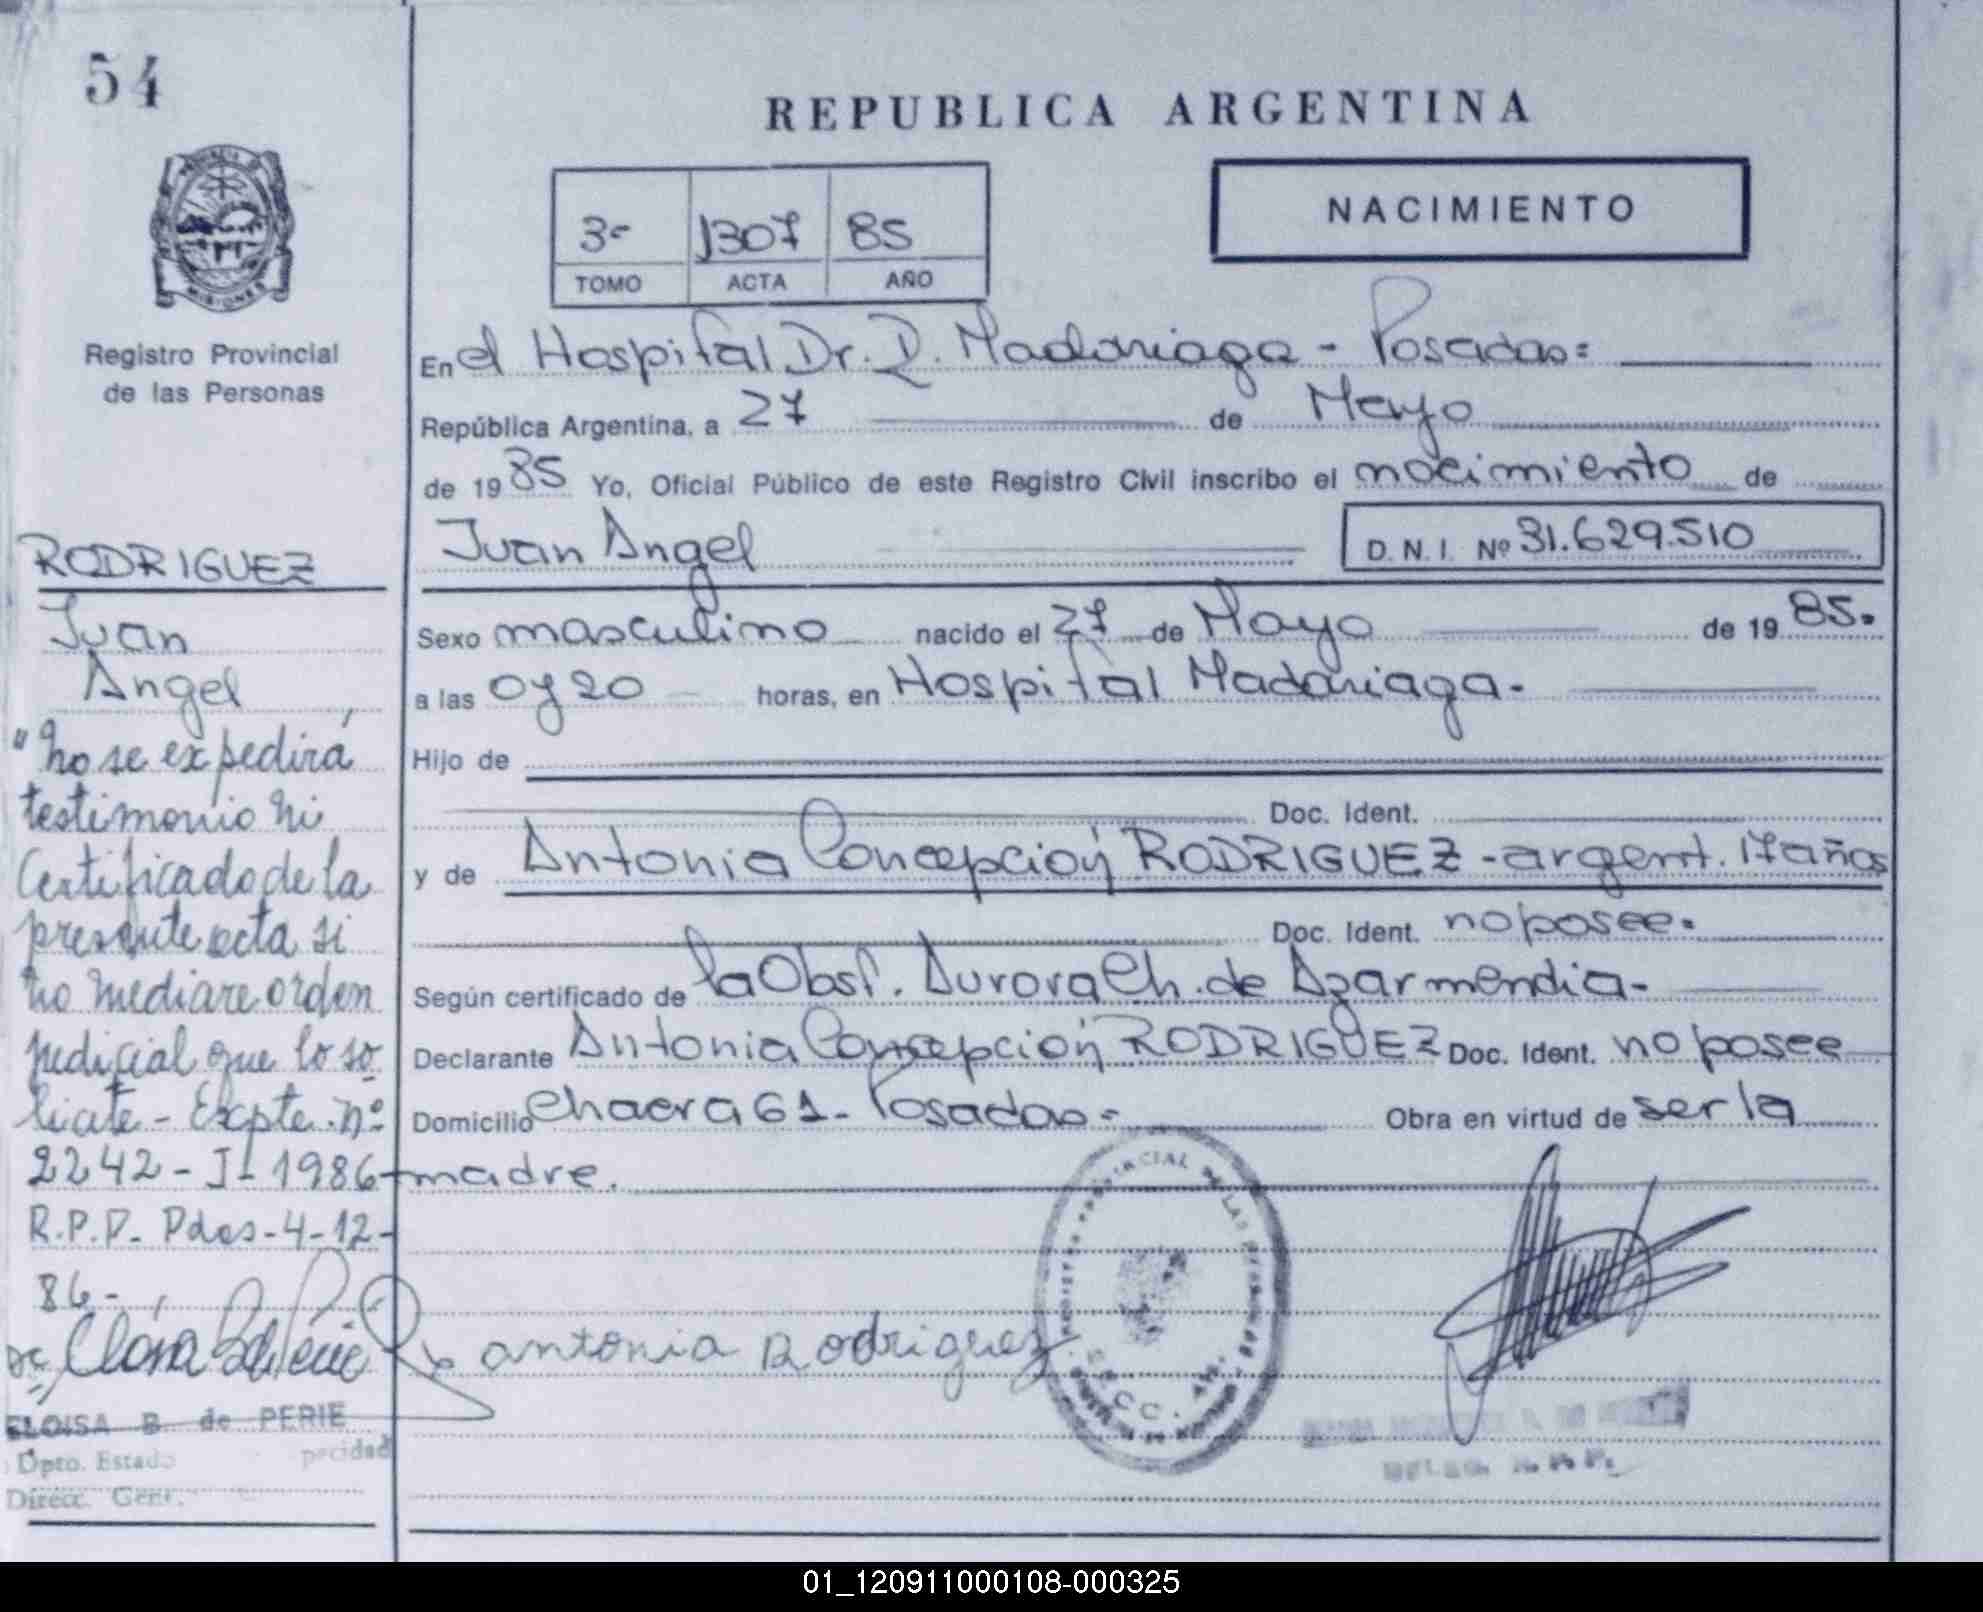 54
REPUBLICA ARGENTINA
3º 1307 85
TOMO ACTA AÑO
NACIMIENTO
PROVINCIA DE
MISIONES
Registro Provincial
de las Personas
En el Hospital Dr. R. Madariaga - Posadas=
República Argentina, a 27 de Mayo
de 1985 Yo, Oficial Público de este Registro Civil inscribo el nacimiento de
Juan Angel D. N. I. Nº 31.629.510
Sexo masculino nacido el 27 de Mayo de 1985.
a las 0y20 horas, en Hospital Madariaga-
Hijo de
Doc. Ident.
y de Antonia Concepción RODRIGUEZ - argent. 17años
Doc. Ident. no posee.
Según certificado de la Obst. Aurora Ch. de Azarmendia-
Declarante Antonia Concepción RODRIGUEZ Doc. Ident. no posee
Domicilio Chacra 61 - Posadas= Obra en virtud de ser la
madre.
antonia Rodriguez
RODRIGUEZ
Juan
Angel
"no se expedirá
testimonio ni
Certificado de la
presente acta si
no mediare orden
judicial que lo so
licite - Expte. nº
2242 - I - 1986
R.P.P. Pdas - 4-12-
86-
ELOISA B. de PERIE
Dpto. Estado pacidad
Direcc. Gent.
01_120911000108-000325